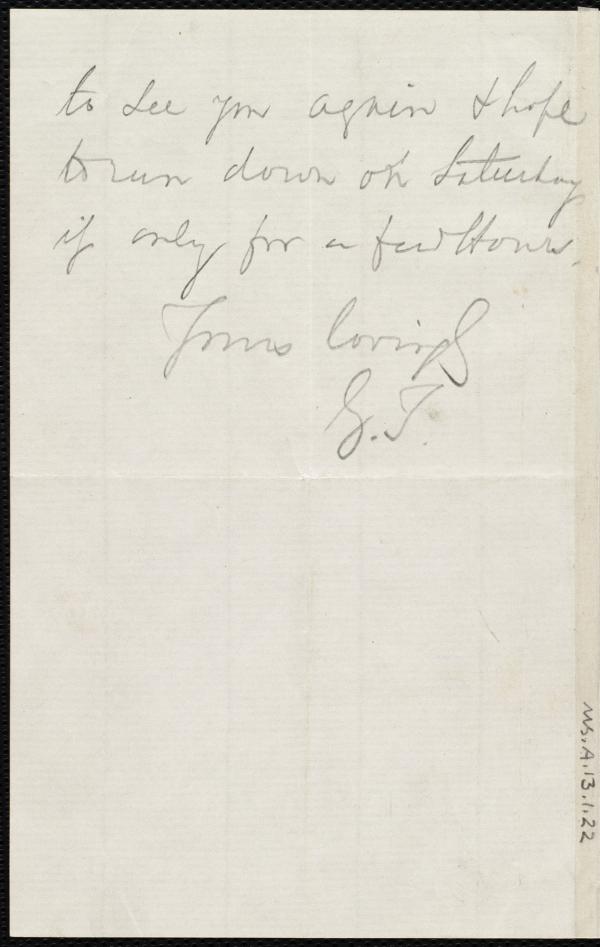 to see you again & hope
to run down on Saturday
if only for a few Hours.
Yours lovingly
G. T.
Ms. A. 13. 1. 22